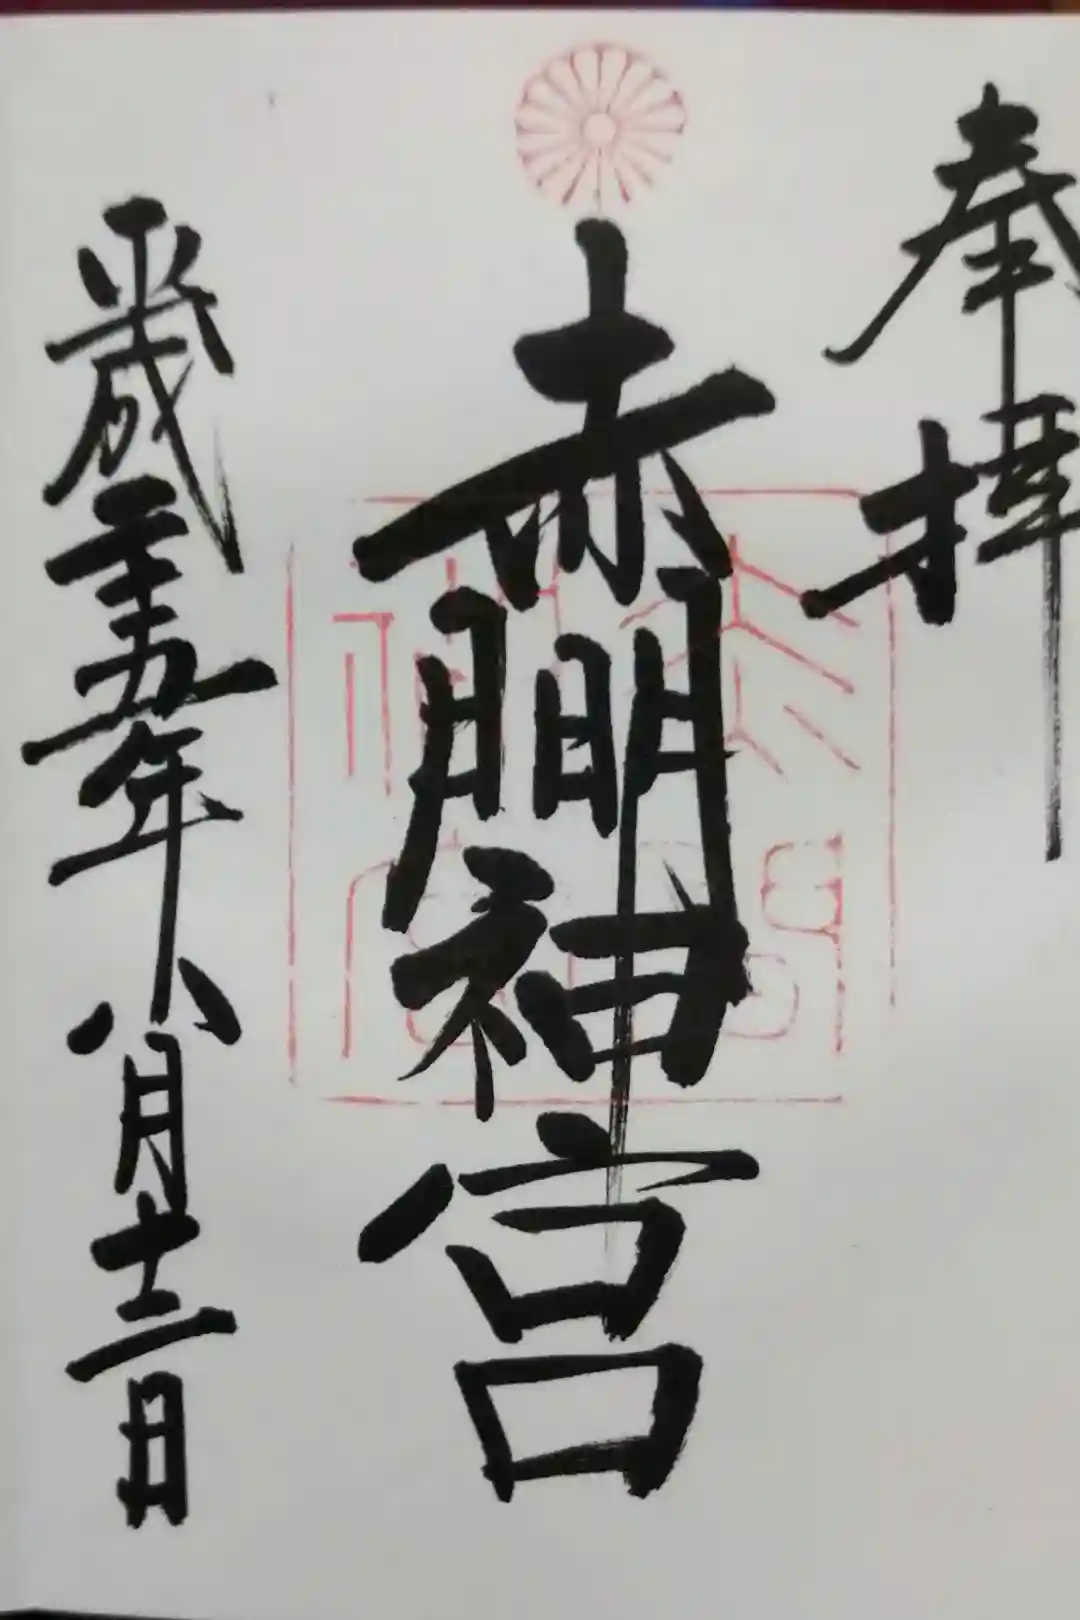 奉拝
赤間神宮
平成二十五年八月十二日